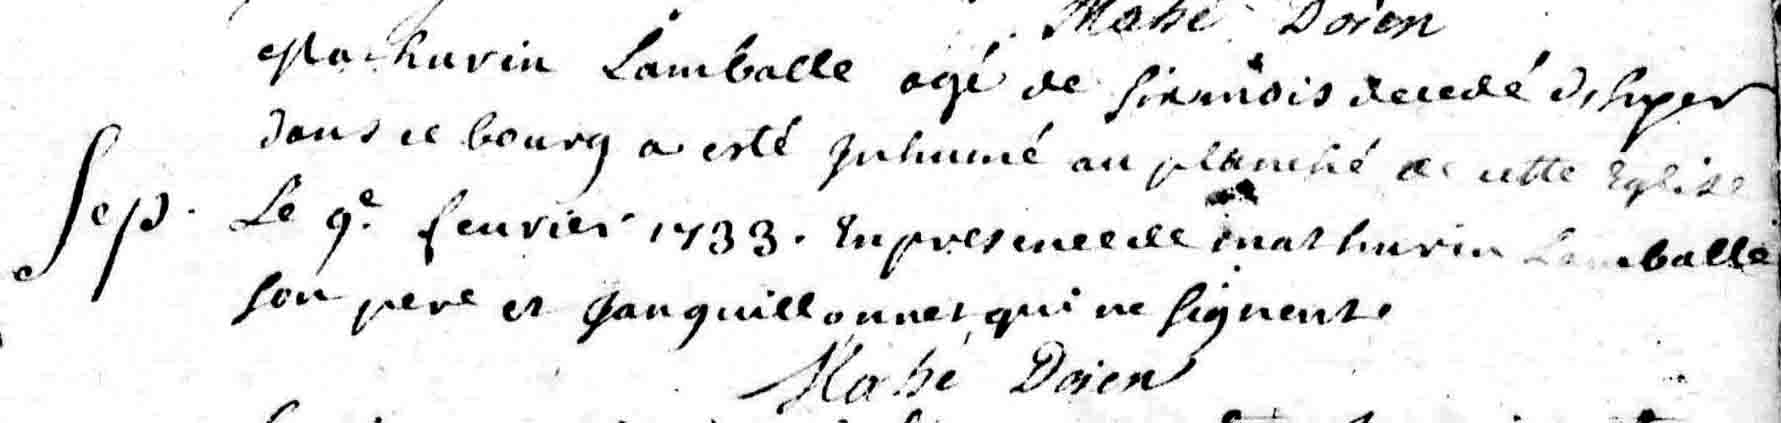 Mahé Doien
Mathurin Lamballe agé de six mois decedé d'hyer
dans ce bourg a esté Inhumé au planché de cette Eglise
Sep. Le 9e. feuvrier 1733. En presence de mathurin Lamballe
son pere et Jan guillonnet qui ne signent.
Mahé Doien